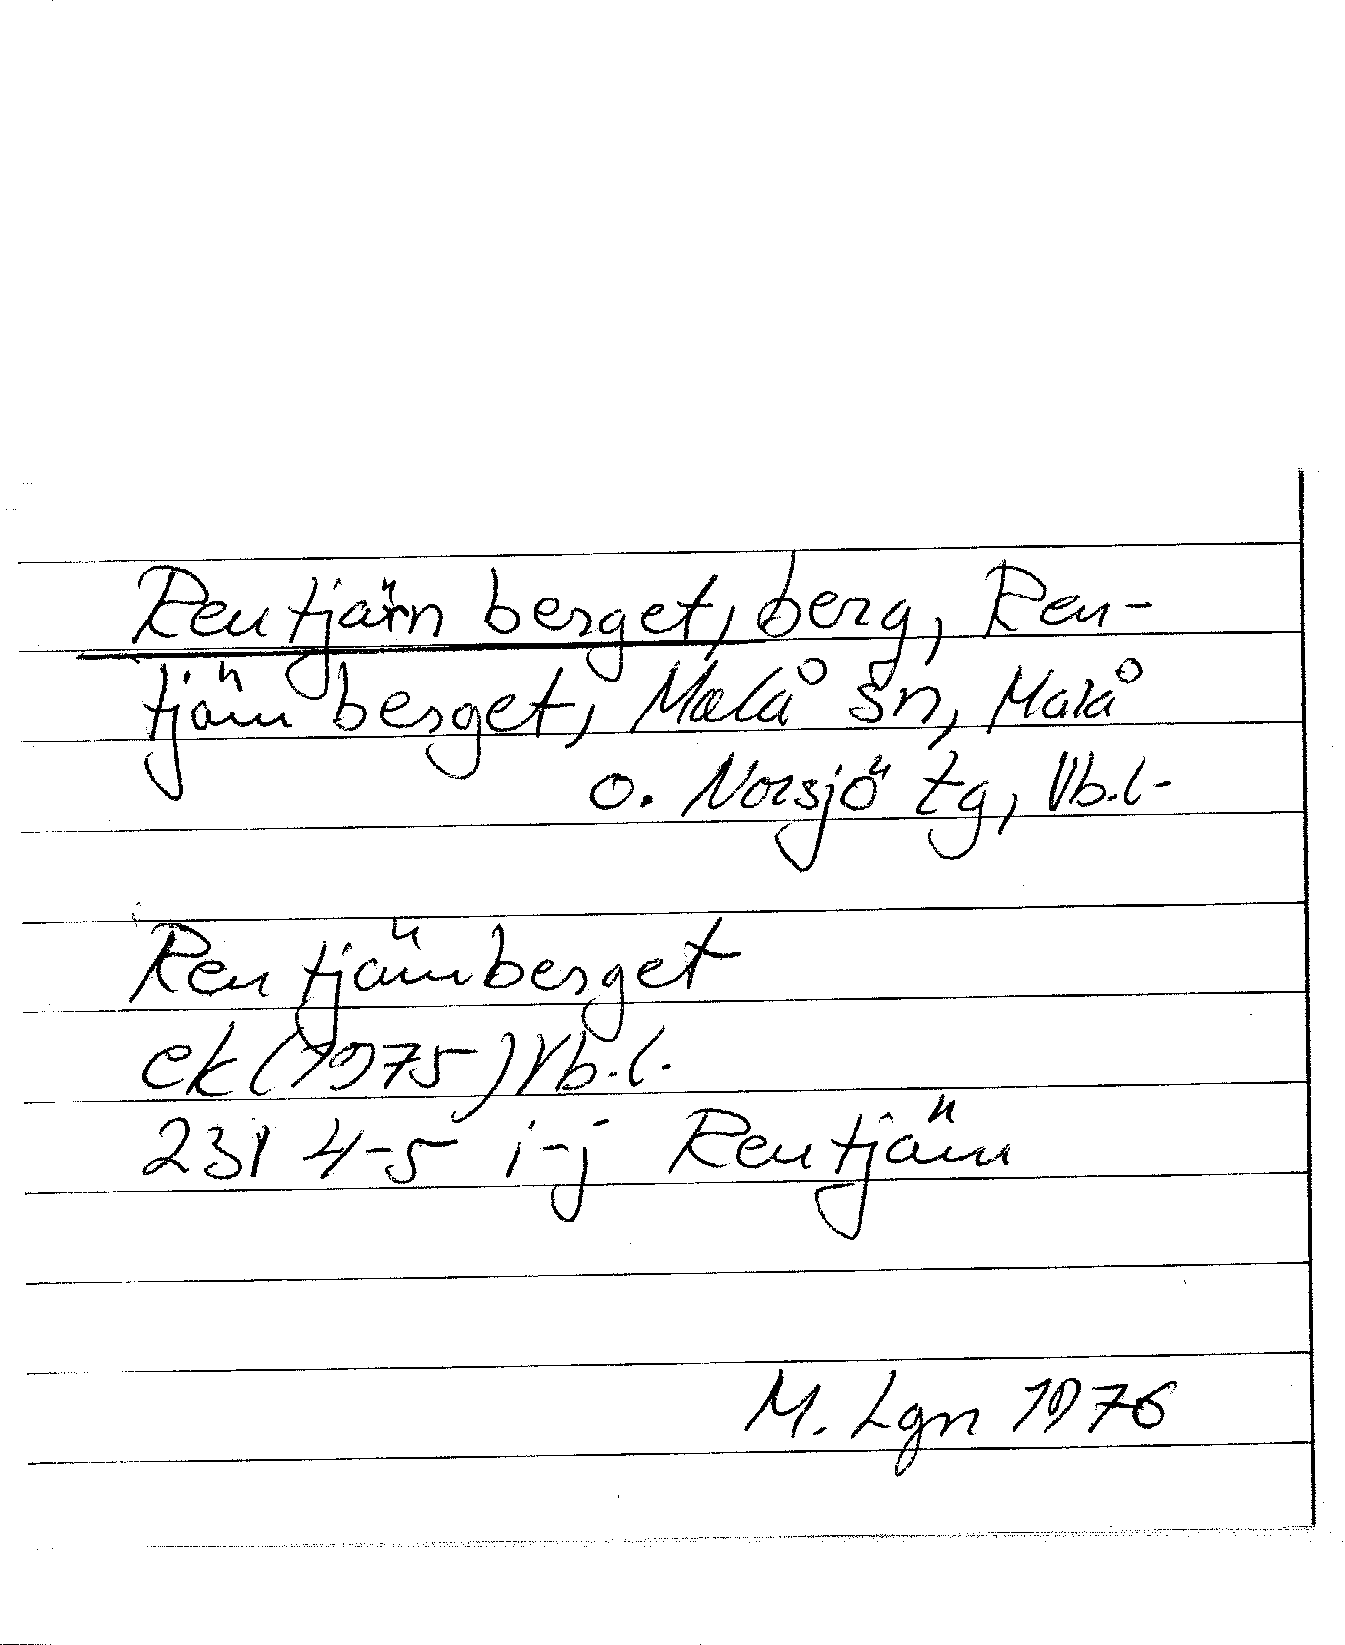 Rentjärn berget, berg, Ren-
tjärn berget, Malå sn, Malå
o. Norsjö tg, Vb.l.
Rentjärnberget
ek (1975) Vb.l.
23I 4-5 i-j Rentjärn
M. Lgn 1976